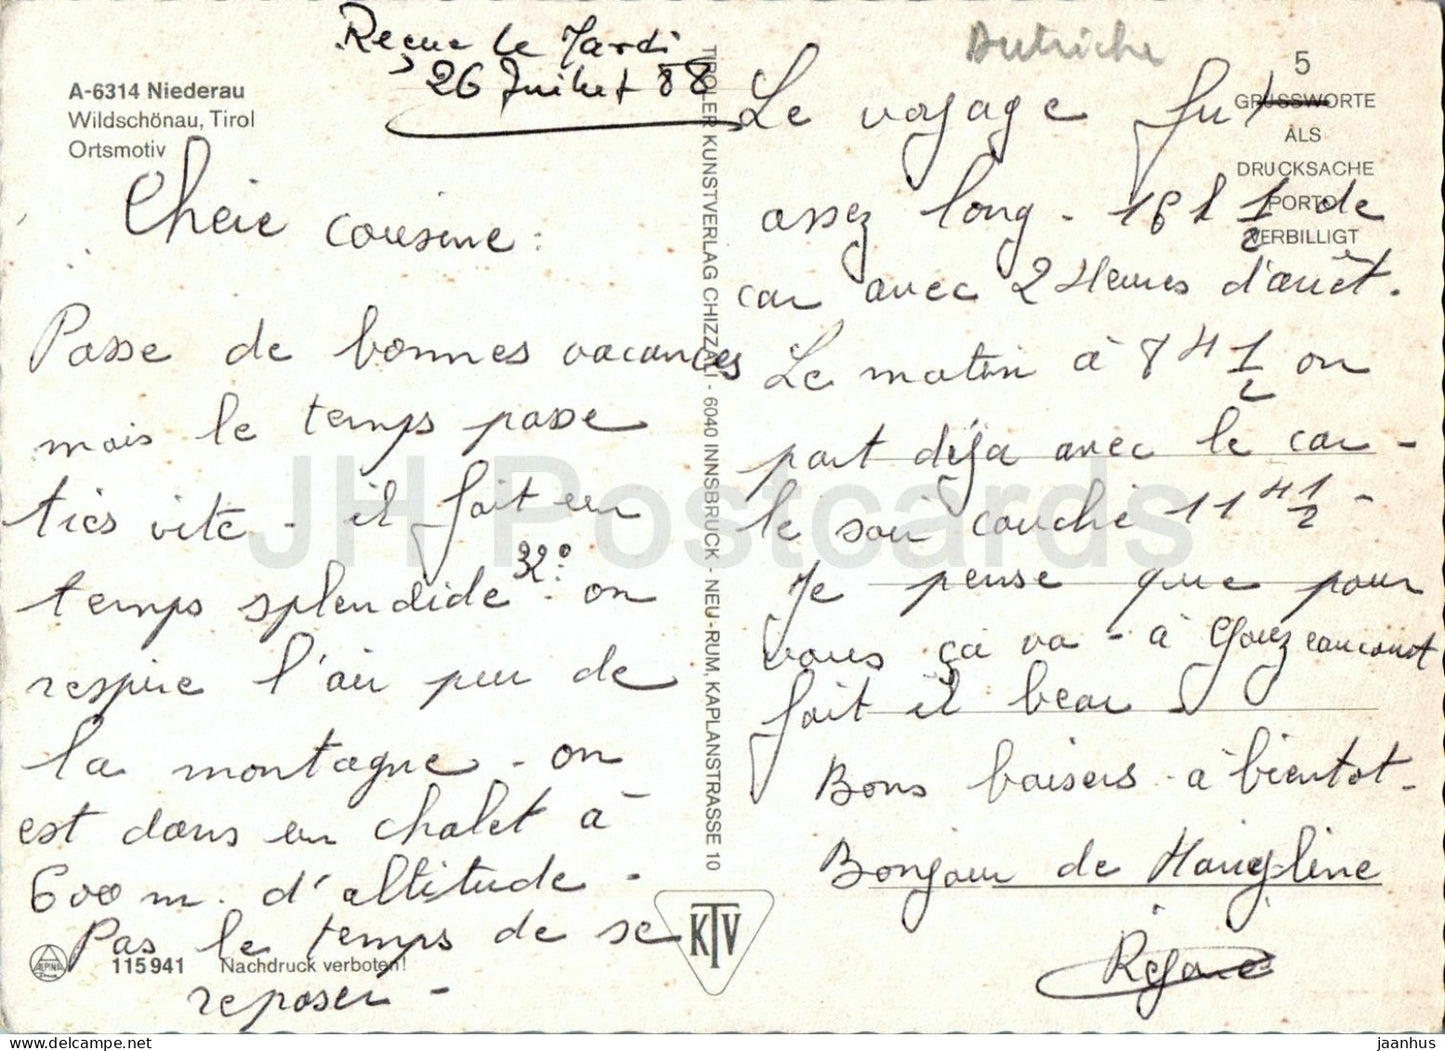 Reçue le Mardi
26 Juillet 88
Autriche
A-6314 Niederau
Wildschönau, Tirol
Ortsmotiv
5
GRUSSWORTE
ALS
DRUCKSACHE
PORTO
VERBILLIGT
Chère cousine :
Passe de bonnes vacances
mais le temps passe
très vite - il fait un
temps splendide 32° - on
respire l'air pur de
la montagne - on
est dans un chalet à
600 m. d'altitude -
Pas le temps de se
reposer -
Le voyage fut
assez long - 16 h 1/2 de
car avec 2 Heures d'arrêt.
Le matin à 8 H 1/2 on
part déja avec le car -
le soir couché 11 H 1/2 -
Je pense que pour
vous ça va - à
fait il beau
Bons baisers - à bientot -
Bonjour de
TIROLER KUNSTVERLAG CHIZZALI - 6040 INNSBRUCK - NEU-RUM, KAPLANSTRASSE 10
KTV
ALPINA
115941 Nachdruck verboten!
JH Postcards
jaanhus